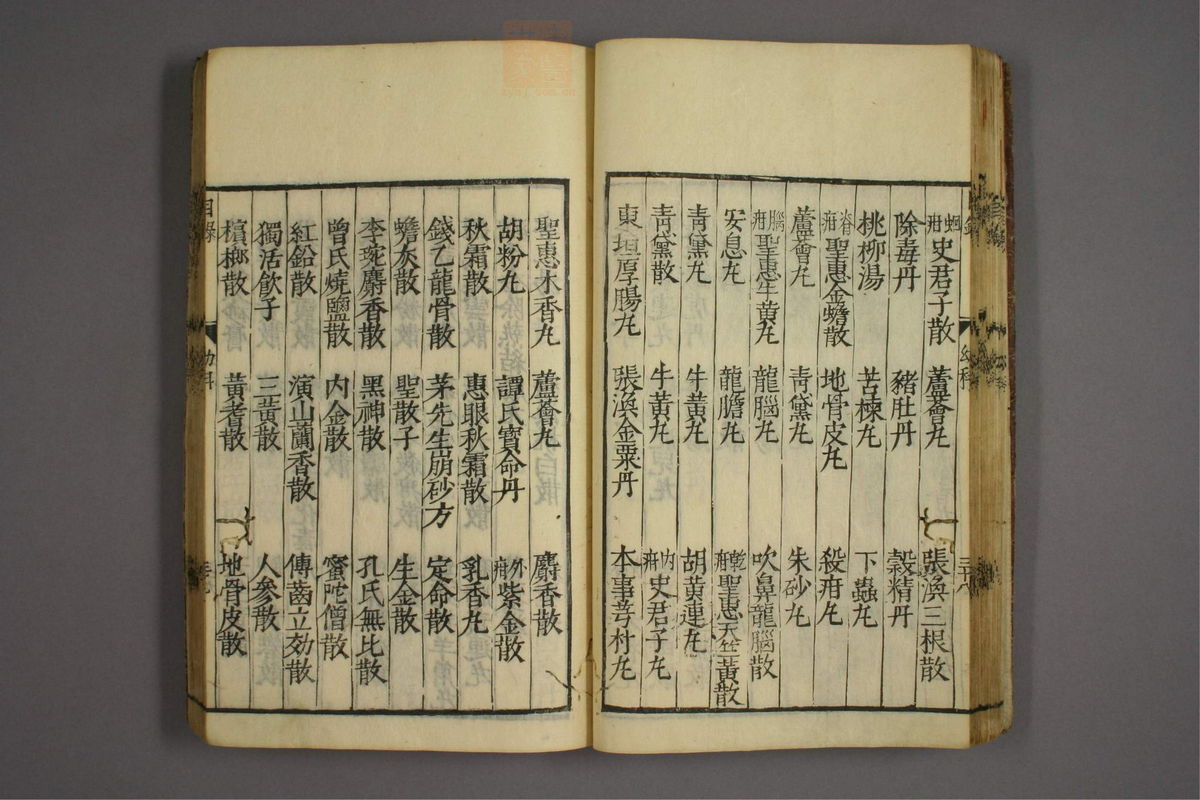 蛔疳 史君子散 蘆薈丸 張渙三根散
除毒丹 豬肚丹 穀精丹
桃柳湯 苦楝丸 下蟲丸
脊疳 聖惠金蟾散 地骨皮丸 殺疳丸
蘆薈丸 青黛丸 朱砂丸
腦疳 聖惠牛黃丸 龍腦丸 吹鼻龍腦散
安息丸 龍膽丸 乾疳 聖惠天竺黃散
青黛丸 牛黃丸 胡黃連丸
青黛散 牛黃丸 內疳 史君子丸
東垣厚腸丸 張渙金粟丹 本事芎朴丸
聖惠木香丸 蘆薈丸 麝香散
胡粉丸 譚氏寶命丹 外疳 紫金散
秋霜散 惠眼秋霜散 乳香丸
錢乙龍骨散 茅先生崩砂方 定命散
蟾灰散 聖散子 生金散
李琬麝香散 黑神散 孔氏無比散
曾氏燒鹽散 內金散 蜜陀僧散
紅鉛散 演山蘭香散 傅齒立効散
獨活飲子 三黃散 人參散
檳榔散 黃耆散 地骨皮散
目錄 幼科